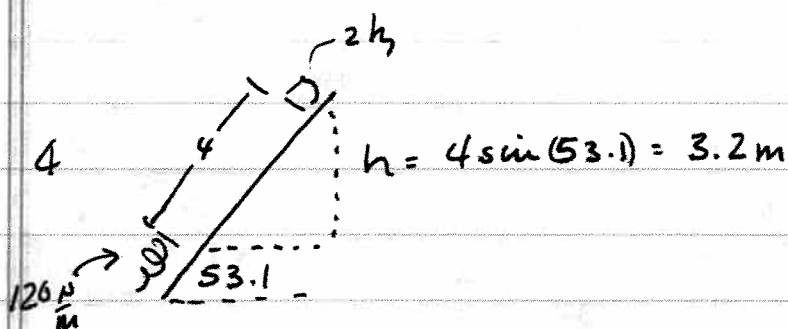 2 kg
4
4
h = 4 sin (53.1) = 3.2 m
53.1
120 N/m